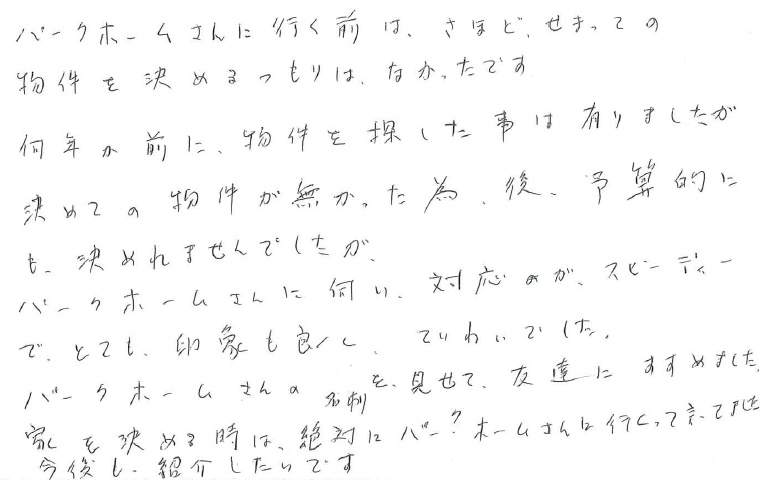 パークホームさんに行く前は、さほど、せまっての
物件を決めるつもりは、なかったです
何年か前に、物件を探した事は有りましたが
決めての物件が無かった為、後、予算的に
も、決めれませんでしたが、
パークホームさんに伺い、対応のが、スピーディー
で、とても、印象も良く、ていねいでした。
パークホームさんの名刺を、見せて、友達にすすめました。
家を決める時は、絶対にパークホームさんに行くって言ってました
今後も、紹介したいです